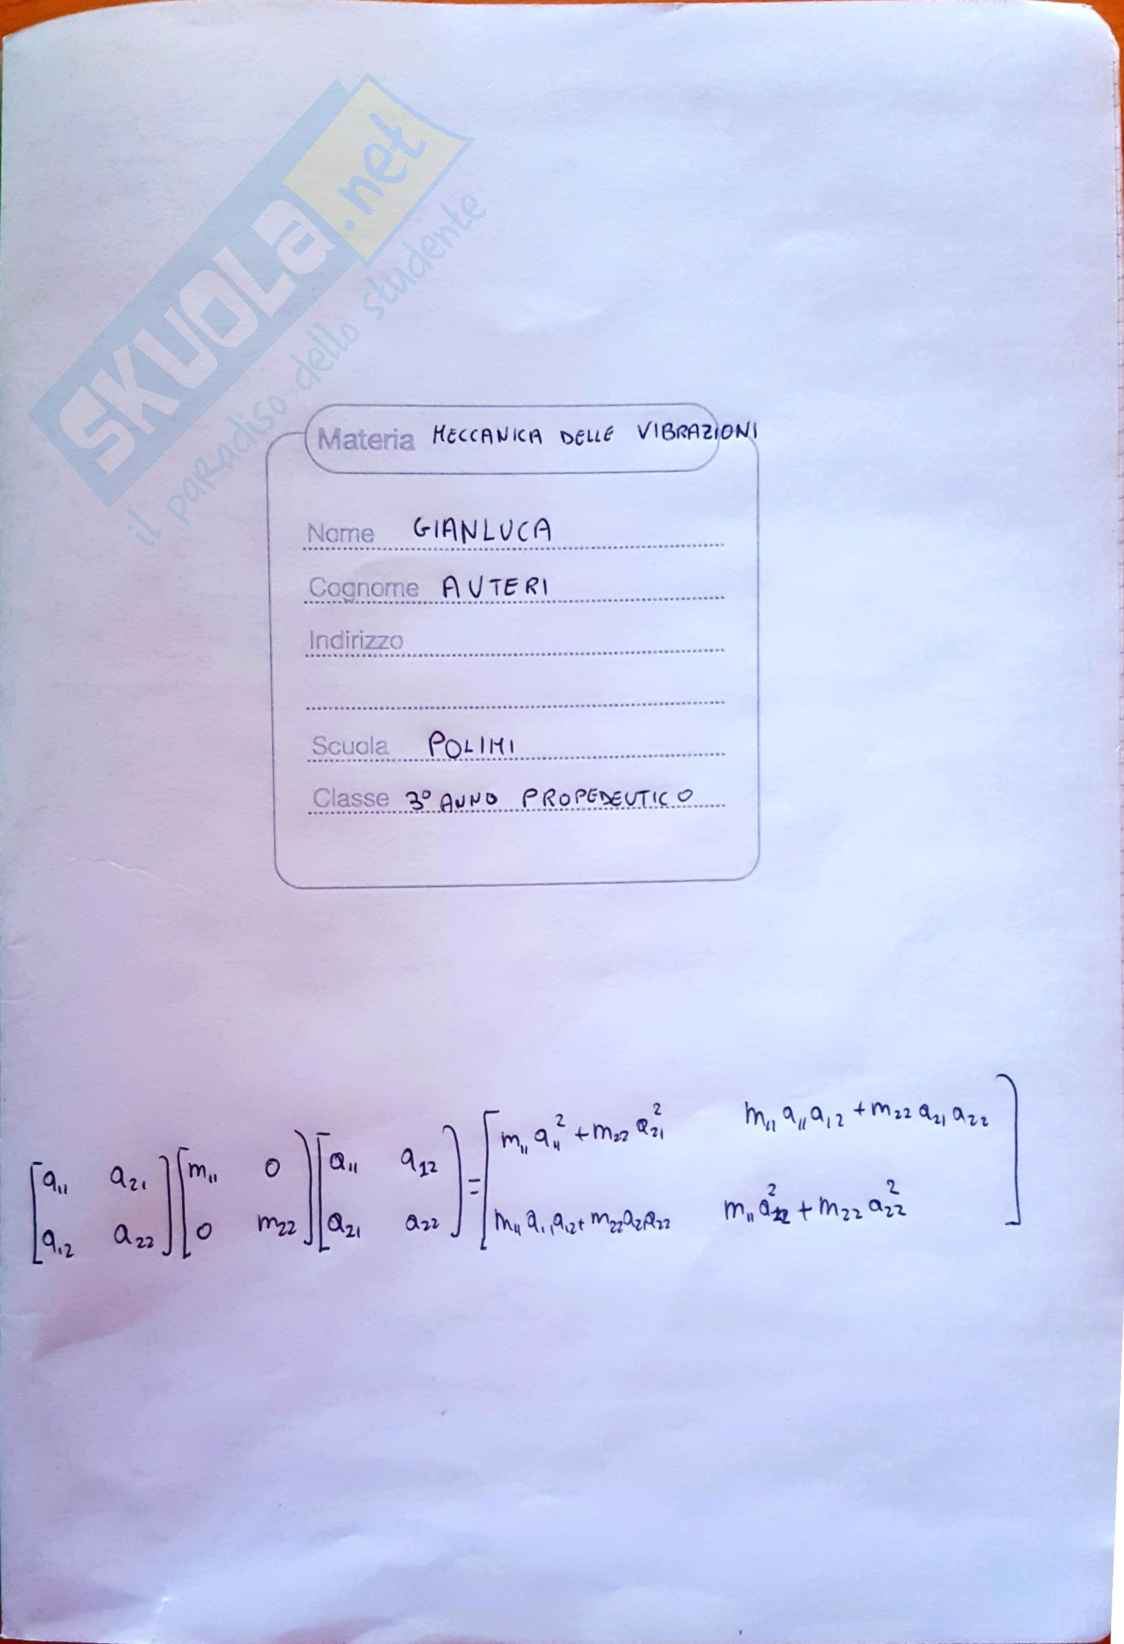 SKUOLA.net
il paradiso dello studente
Materia MECCANICA DELLE VIBRAZIONI
Nome GIANLUCA
Cognome AUTERI
Indirizzo
Scuola POLIMI
Classe 3° ANNO PROPEDEUTICO
[a₁₁ a₂₁] [m₁₁ 0] [a₁₁ a₁₂] = [m₁₁a₁₁² + m₂₂a₂₁² m₁₁a₁₁a₁₂ + m₂₂a₂₁a₂₂]
[a₁₂ a₂₂] [0 m₂₂] [a₂₁ a₂₂] [m₁₁a₁₁a₁₂ + m₂₂a₂₁a₂₂ m₁₁a₁₂² + m₂₂a₂₂²]